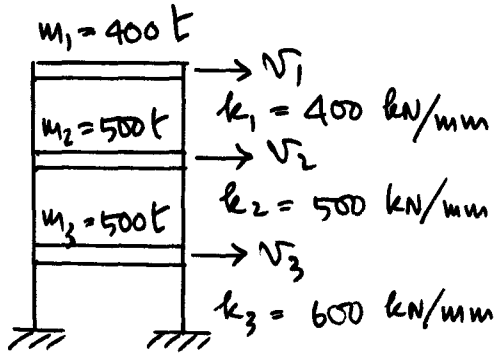 m₁ = 400 t
v₁
k₁ = 400 kN/mm
m₂ = 500t
v₂
k₂ = 500 kN/mm
m₃ = 500t
v₃
k₃ = 600 kN/mm